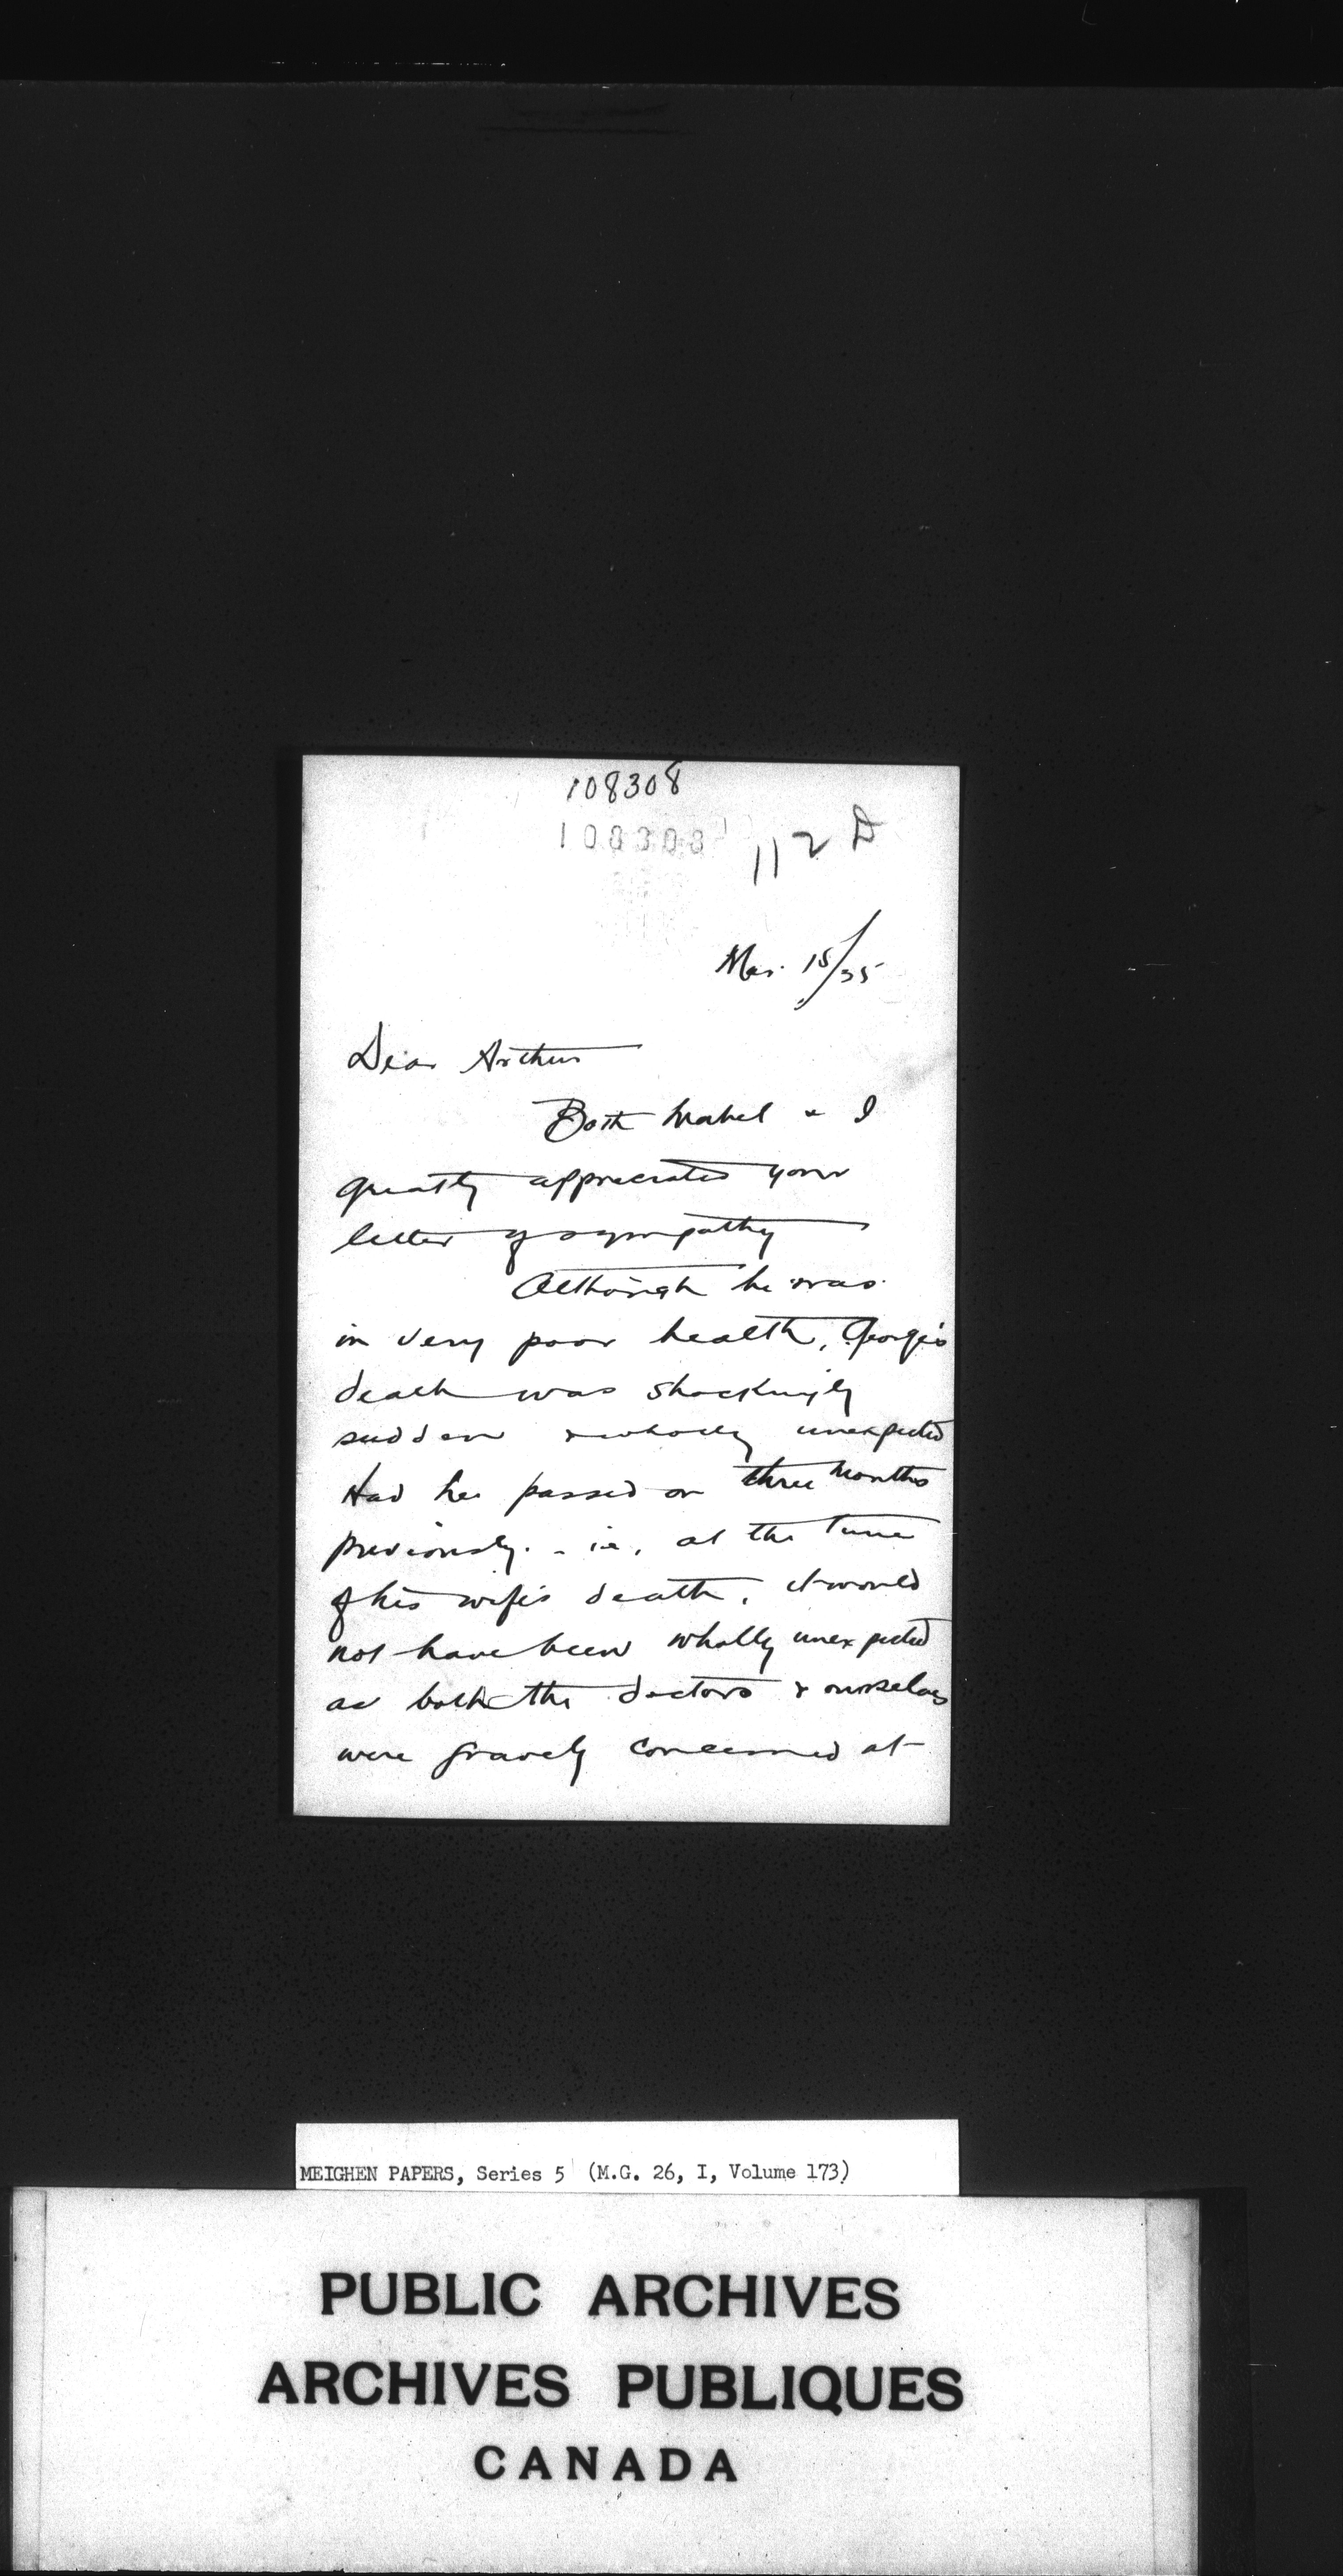 108308
108308
112 D
Mar. 15/35
Dear Arthur
Both Mabel & I
greatly appreciated your
letter of sympathy
Although he was
in very poor health, George's
death was shockingly
sudden & wholly unexpected
Had he passed on three months
previously. - i.e. at the time
of his wife's death, it would
not have been wholly unexpected
as both the doctors & ourselves
were gravely concerned at
MEIGHEN PAPERS, Series 5 (M.G. 26, I, Volume 173)
PUBLIC ARCHIVES
ARCHIVES PUBLIQUES
CANADA